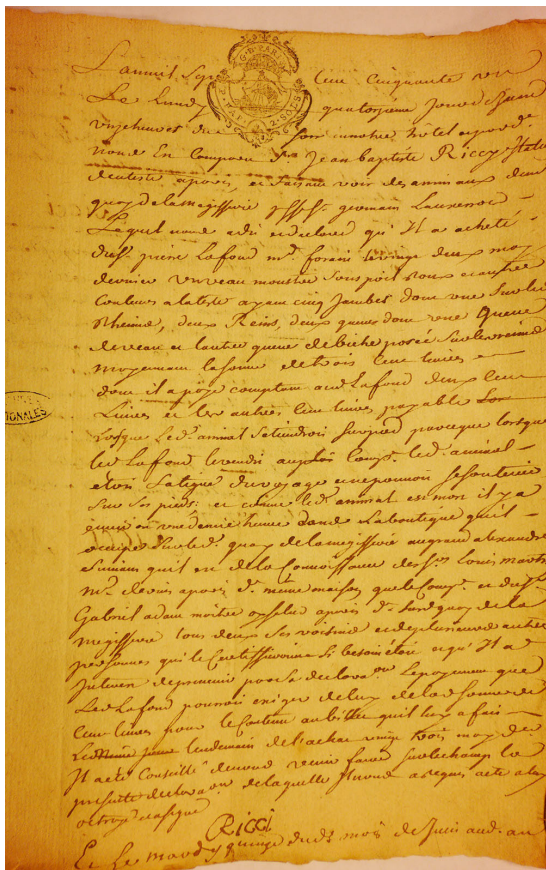 L'an mil Sept Cent Cinquante un
Le Lundy quatorzieme jour de Juin
G. D. PAR
2 SOLS
onze heures du soir en notre hôtel et par d.t
nous Est Comparu S.r Jean baptiste Riccy Italien
de nation a paris, et faisant voir des animaux demt
quay de la megisserie p.sse S.t germain Lauxerrois
Lequel nous a dit et declaré qu'Il a acheté
du S. pierre Lafond m.d forain le vingt deux may
dernier un veau monstre sous poil roux et autres
Couleurs a la teste ayant cinq Jambes dont une Sur les
Rheins, deux Reins, deux queues dont une Queue
de veau et l'autre queue de biche posée sur les reins
moyennant la somme de trois Cent livres
dont il a payé comptant aud. Lafond deux Cent
Livres et les autres Cent livres payable
Lorsque led. animal se tiendroit sur pied parceque lorsque
led. Lafond le vendit aud. Comp.t led. animal
etoit fatigué du voyage et ne pouvoit se soutenir
sur ses pieds et comme led. animal est mort il y a
environ une demie heure dans la boutique qu'il
occupe sur led. quay de la megisserie au grand alexandre
Suivant qu'il est de la Connoissance des S.rs Louis
m.d de vins a paris d.t meme maison que le Comp.t et du S.
Gabriel adam maitre a paris d.t Sur led. quay de la
megisserie tous deux ses voisins et de plusieurs autres
personnes qui le Certiffieront si besoin étoit et qu'Il a
Interest de prevenir par sa declara.on Le payement que
Led. Lafond pourroit exiger de luy de lad. somme de
Cent livres pour le Contenu au billet qu'il luy a fait
Le lendemain de l'achat vingt trois may d.r
Il a eté Conseillé de nous venir faire sur le champ la
presente declara.on de laquelle Il nous a requis acte a luy
octroyé et a signé
RICCI
Et Le mardy quinze desd. mois de Juin aud. an
IGNALES